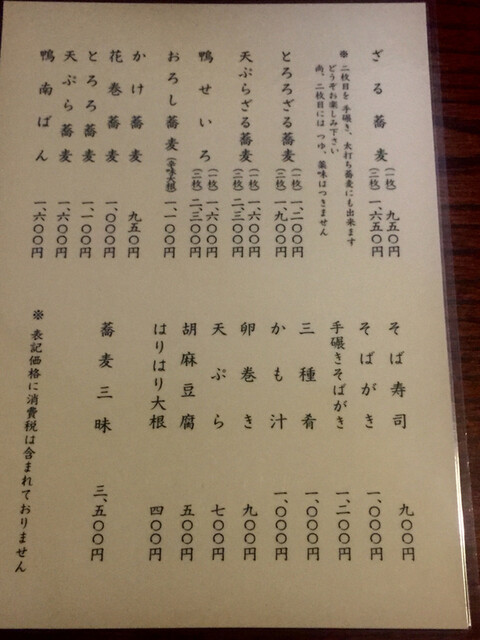 ざる蕎麦(一枚) 九五〇円
(二枚) 一、六五〇円
※ 二枚目を 手碾き、太打ち蕎麦にも出来ます
どうぞお楽しみ下さい
尚、二枚目には つゆ、薬味はつきません
とろろざる蕎麦(一枚) 一、二〇〇円
(二枚) 一、九〇〇円
天ぷらざる蕎麦(一枚) 一、六〇〇円
(二枚) 二、三〇〇円
鴨せいろ(一枚) 一、六〇〇円
(二枚) 二、三〇〇円
おろし蕎麦(辛味大根) 一、一〇〇円
かけ蕎麦 九五〇円
花巻蕎麦 一、〇〇〇円
とろろ蕎麦 一、一〇〇円
天ぷら蕎麦 一、六〇〇円
鴨南ばん 一、六〇〇円
そば寿司 九〇〇円
そばがき 一、〇〇〇円
手碾きそばがき 一、二〇〇円
三種肴 一、〇〇〇円
かも汁 一、〇〇〇円
卵巻き 九〇〇円
天ぷら 七〇〇円
胡麻豆腐 五〇〇円
はりはり大根 四〇〇円
蕎麦三昧 三、五〇〇円
※ 表記価格に消費税は含まれておりません